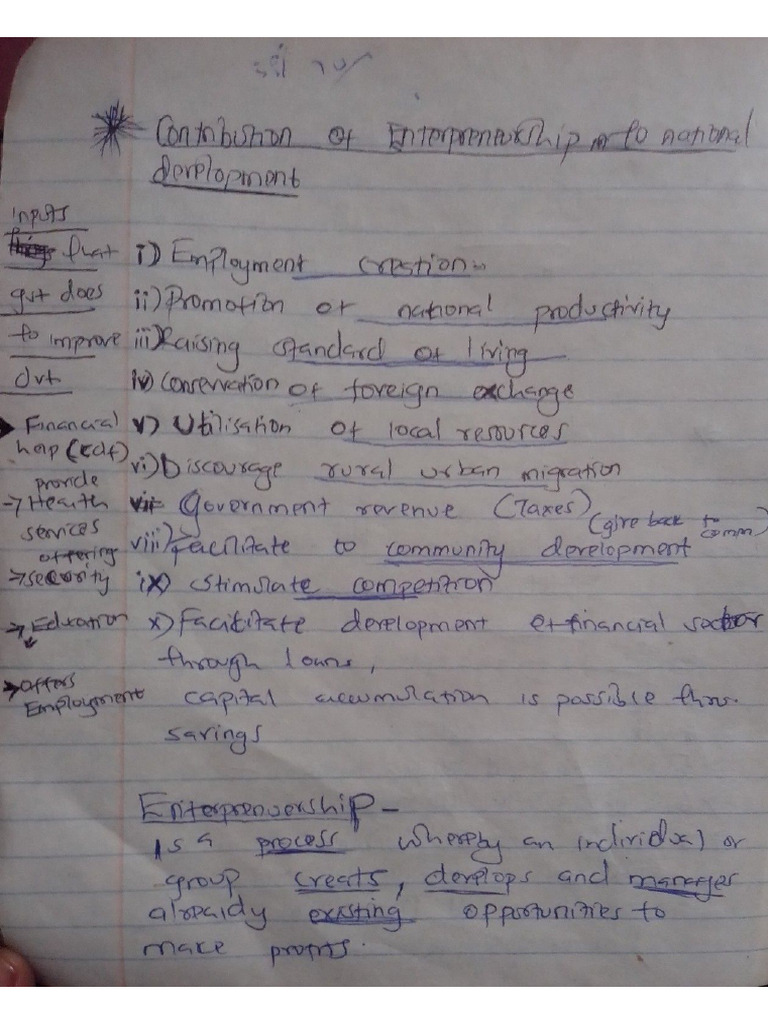 Contribution of Enterpreneurship to national
development
inputs
that
gvt does
to improve
dvt
i) Employment creation
ii) Promotion of national productivity
iii) Raising standard of living
iv) Conservation of foreign exchange
v) Utilisation of local resources
vi) Discourage rural urban migration
vii Government revenue (Taxes)
(give back to
comm)
viii) facilitate to community development
ix) Stimulate competition
x) Facilitate development of financial sector
through loans,
capital accumulation is possible thro
savings
Financial
help (cdf)
provide
→ Health
services
offering
→ security
→ Education
→ offers
Employment
Enterprenuership -
Is a process whereby an individual or
group creats, develops and manages
alreaidy existing opportunities to
make profits.